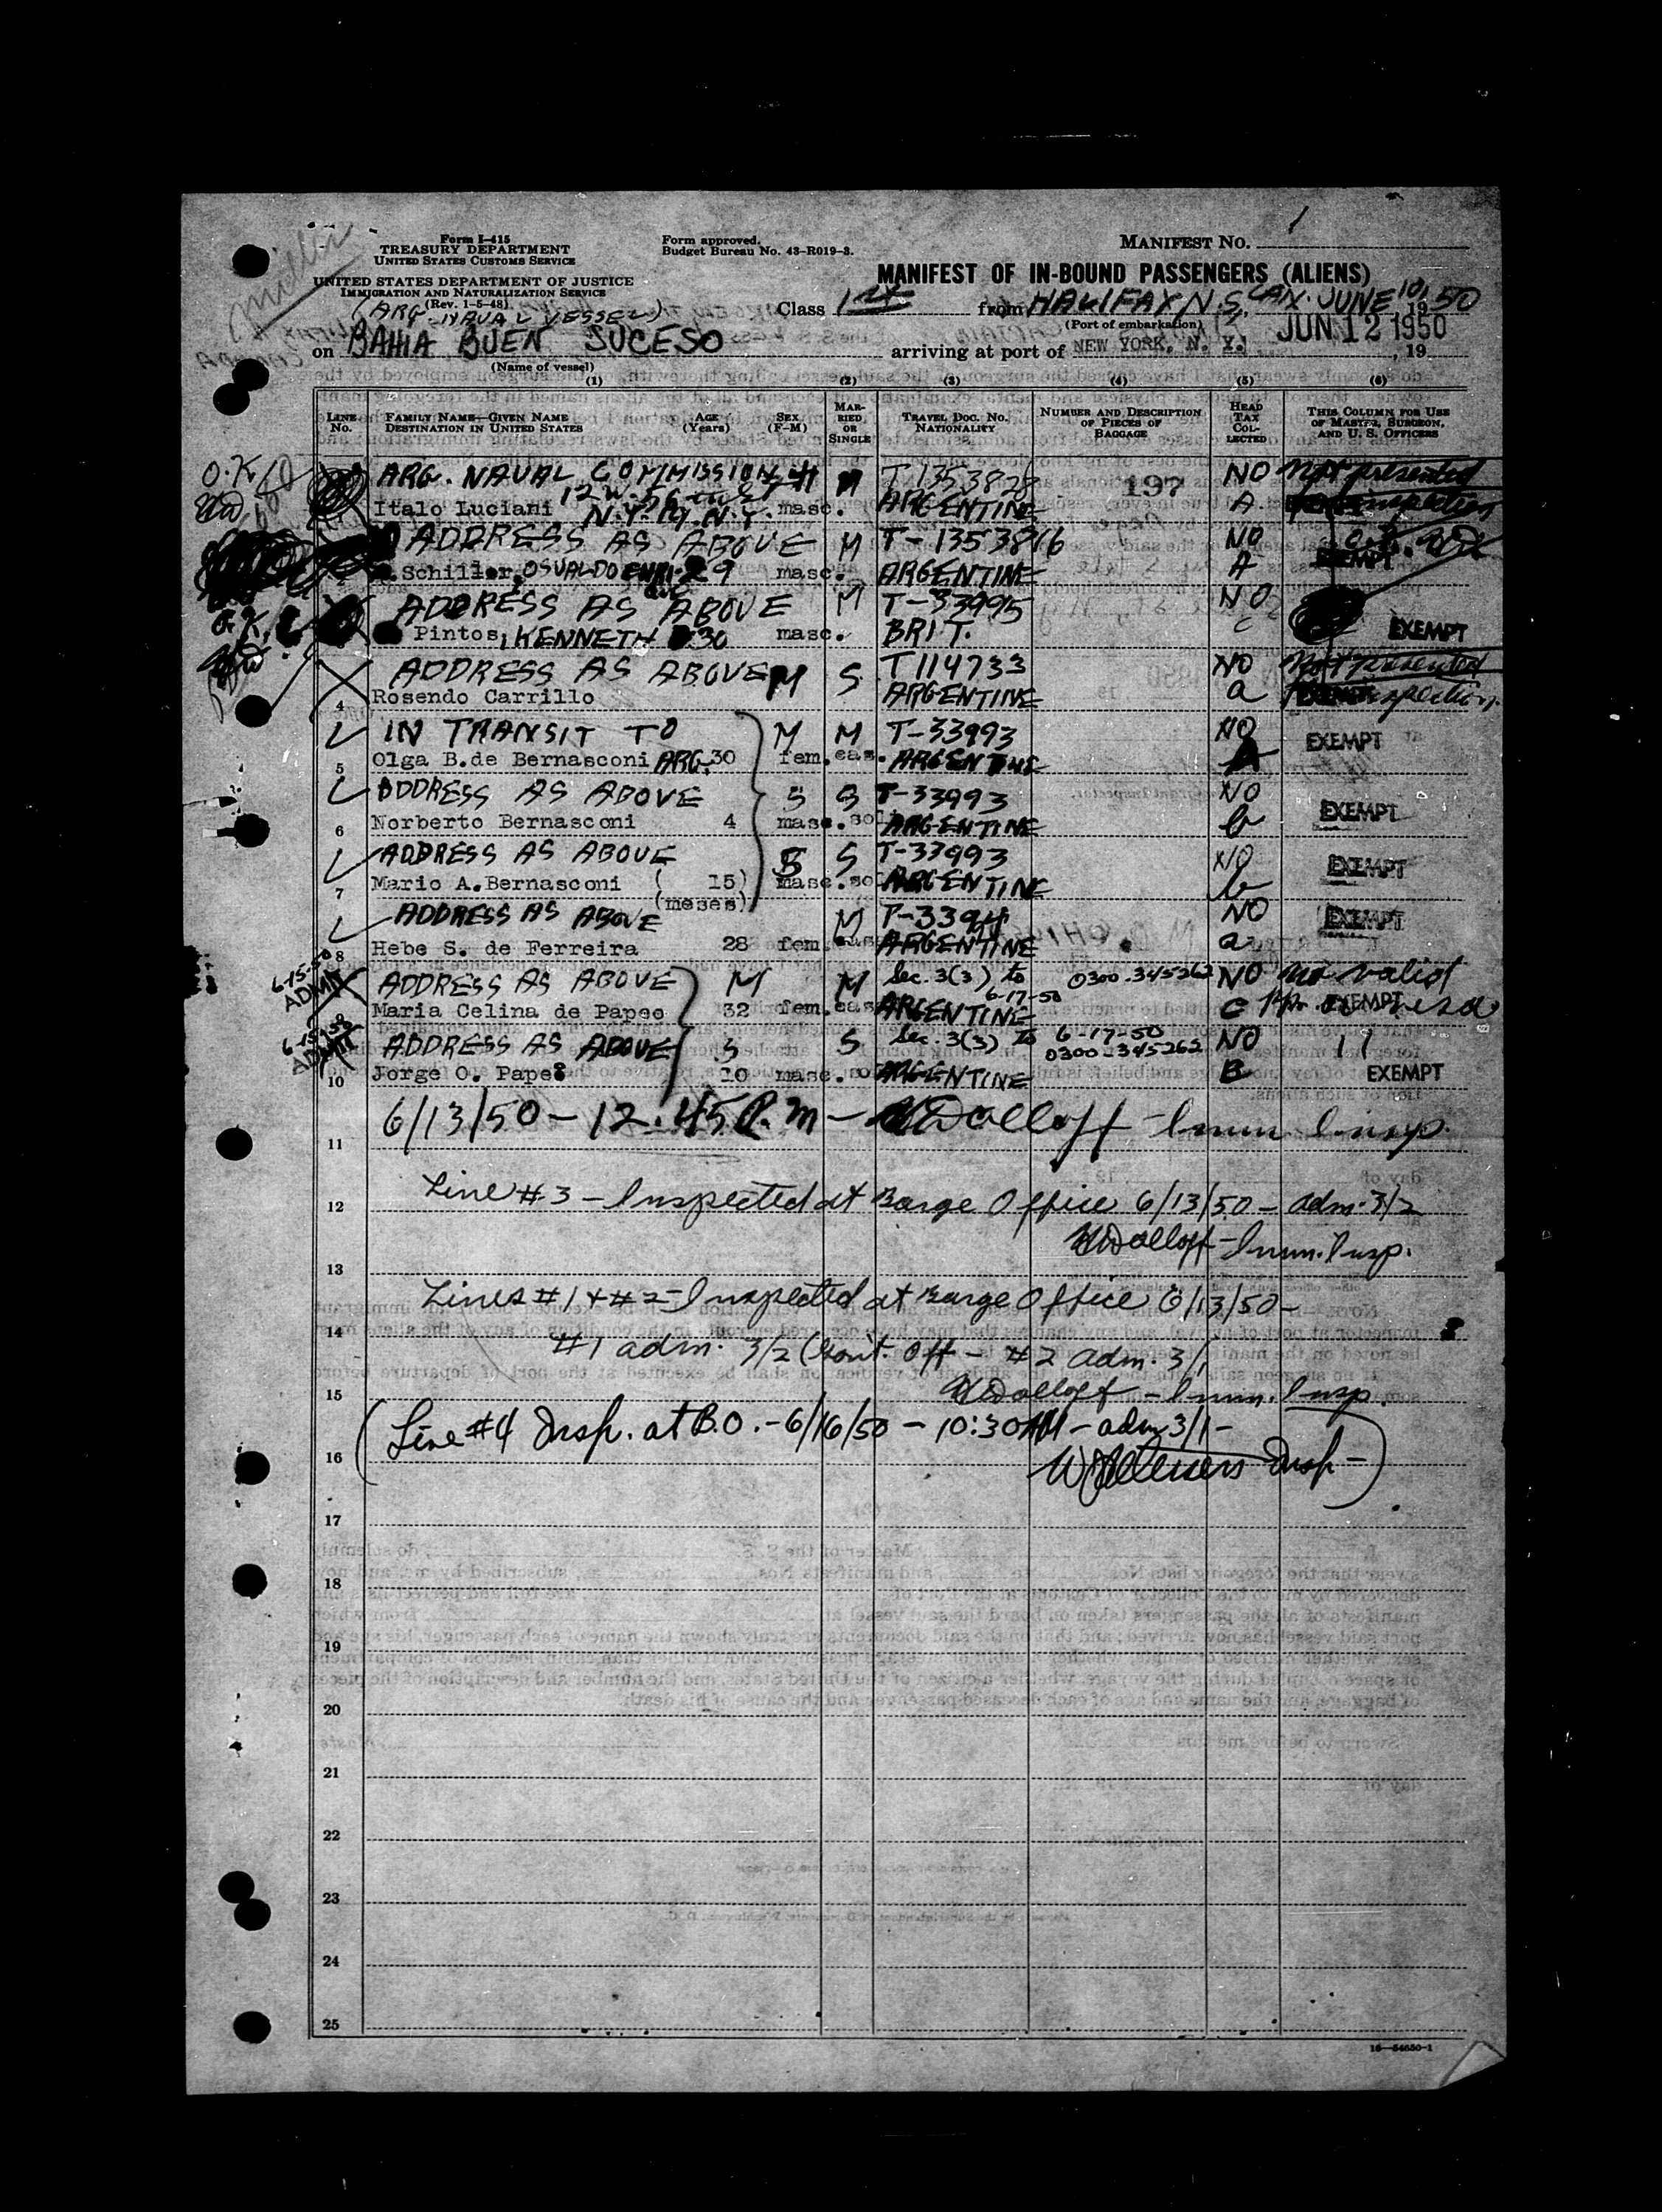 Form I-415
TREASURY DEPARTMENT
UNITED STATES CUSTOMS SERVICE
UNITED STATES DEPARTMENT OF JUSTICE
IMMIGRATION AND NATURALIZATION SERVICE
(Rev. 1-5-48)
Form approved.
Budget Bureau No. 43-R019-3.
MANIFEST NO. 1
MANIFEST OF IN-BOUND PASSENGERS (ALIENS)
(ARG. NAVAL VESSEL) Class 1st from HALIFAX N.S. CAN. JUNE 10, 1950
(Port of embarkation)
on BAHIA BUEN SUCESO arriving at port of NEW YORK, N. Y. JUN 12 1950, 19
(Name of vessel)
(1) (2) (3) (4) (5) (6)
LINE No. FAMILY NAME—GIVEN NAME DESTINATION IN UNITED STATES AGE (Years) SEX (F-M) MARRIED OR SINGLE TRAVEL DOC. NO. NATIONALITY NUMBER AND DESCRIPTION OF PIECES OF BAGGAGE HEAD TAX COLLECTED THIS COLUMN FOR USE OF MASTER, SURGEON, AND U. S. OFFICERS
O.K. ARG. NAVAL COMMISSION M T-1353828 197 NO Not presented
Italo Luciani 12 W. 56 N.Y. 19. N.Y. masc. ARGENTINE A
ADDRESS AS ABOVE M T-1353816 NO O.K.
2 Schiller, OSVALDO 29 masc. ARGENTINE A EXEMPT
ADDRESS AS ABOVE M T-33995 NO
O.K. Pintos, KENNETH 30 masc. BRIT. C EXEMPT
ADDRESS AS ABOVE M S T114733 NO Not presented
4 Rosendo Carrillo ARGENTINE a inspection.
IN TRANSIT TO M M T-33993 NO
5 Olga B.de Bernasconi ARG. 30 fem. cas. ARGENTINE A EXEMPT
ADDRESS AS ABOVE S S T-33993 NO
6 Norberto Bernasconi 4 masc. sol ARGENTINE b EXEMPT
ADDRESS AS ABOVE S S T-33993 NO
7 Mario A.Bernasconi (15) masc. sol ARGENTINE b EXEMPT
(meses)
ADDRESS AS ABOVE M NO
8 Hebe S. de Ferreira 28 fem. cas ARGENTINE a EXEMPT
6-15-50 ADMIT ADDRESS AS ABOVE M M Sec. 3(3) to 6-17-50 0300-345262 NO no valid
9 Maria Celina de Papeo 32 fem. cas ARGENTINE C EXEMPT visa
6-15-50 ADMIT ADDRESS AS ABOVE S S Sec. 3(3) to 6-17-50 0300-345262 NO 11
10 Jorge O. Papeo 10 masc. so ARGENTINE B EXEMPT
6/13/50 - 12.45 P.m - Dolloff - Imm Insp.
11
Line #3 - Inspected at Barge Office 6/13/50 - adm. 3/2
12
Dolloff - Imm. Insp.
13
Lines #1 & #2 - Inspected at Barge Office 6/13/50 -
14
#1 adm. 3/2 (Govt. Off - #2 adm. 3/1
Dolloff - Imm. Insp.
15
(Line #4 Insp. at B.O. - 6/16/50 - 10:30 AM - adm 3/1 -
16
Insp -)
17
18
19
20
21
22
23
24
25
16—54650-1